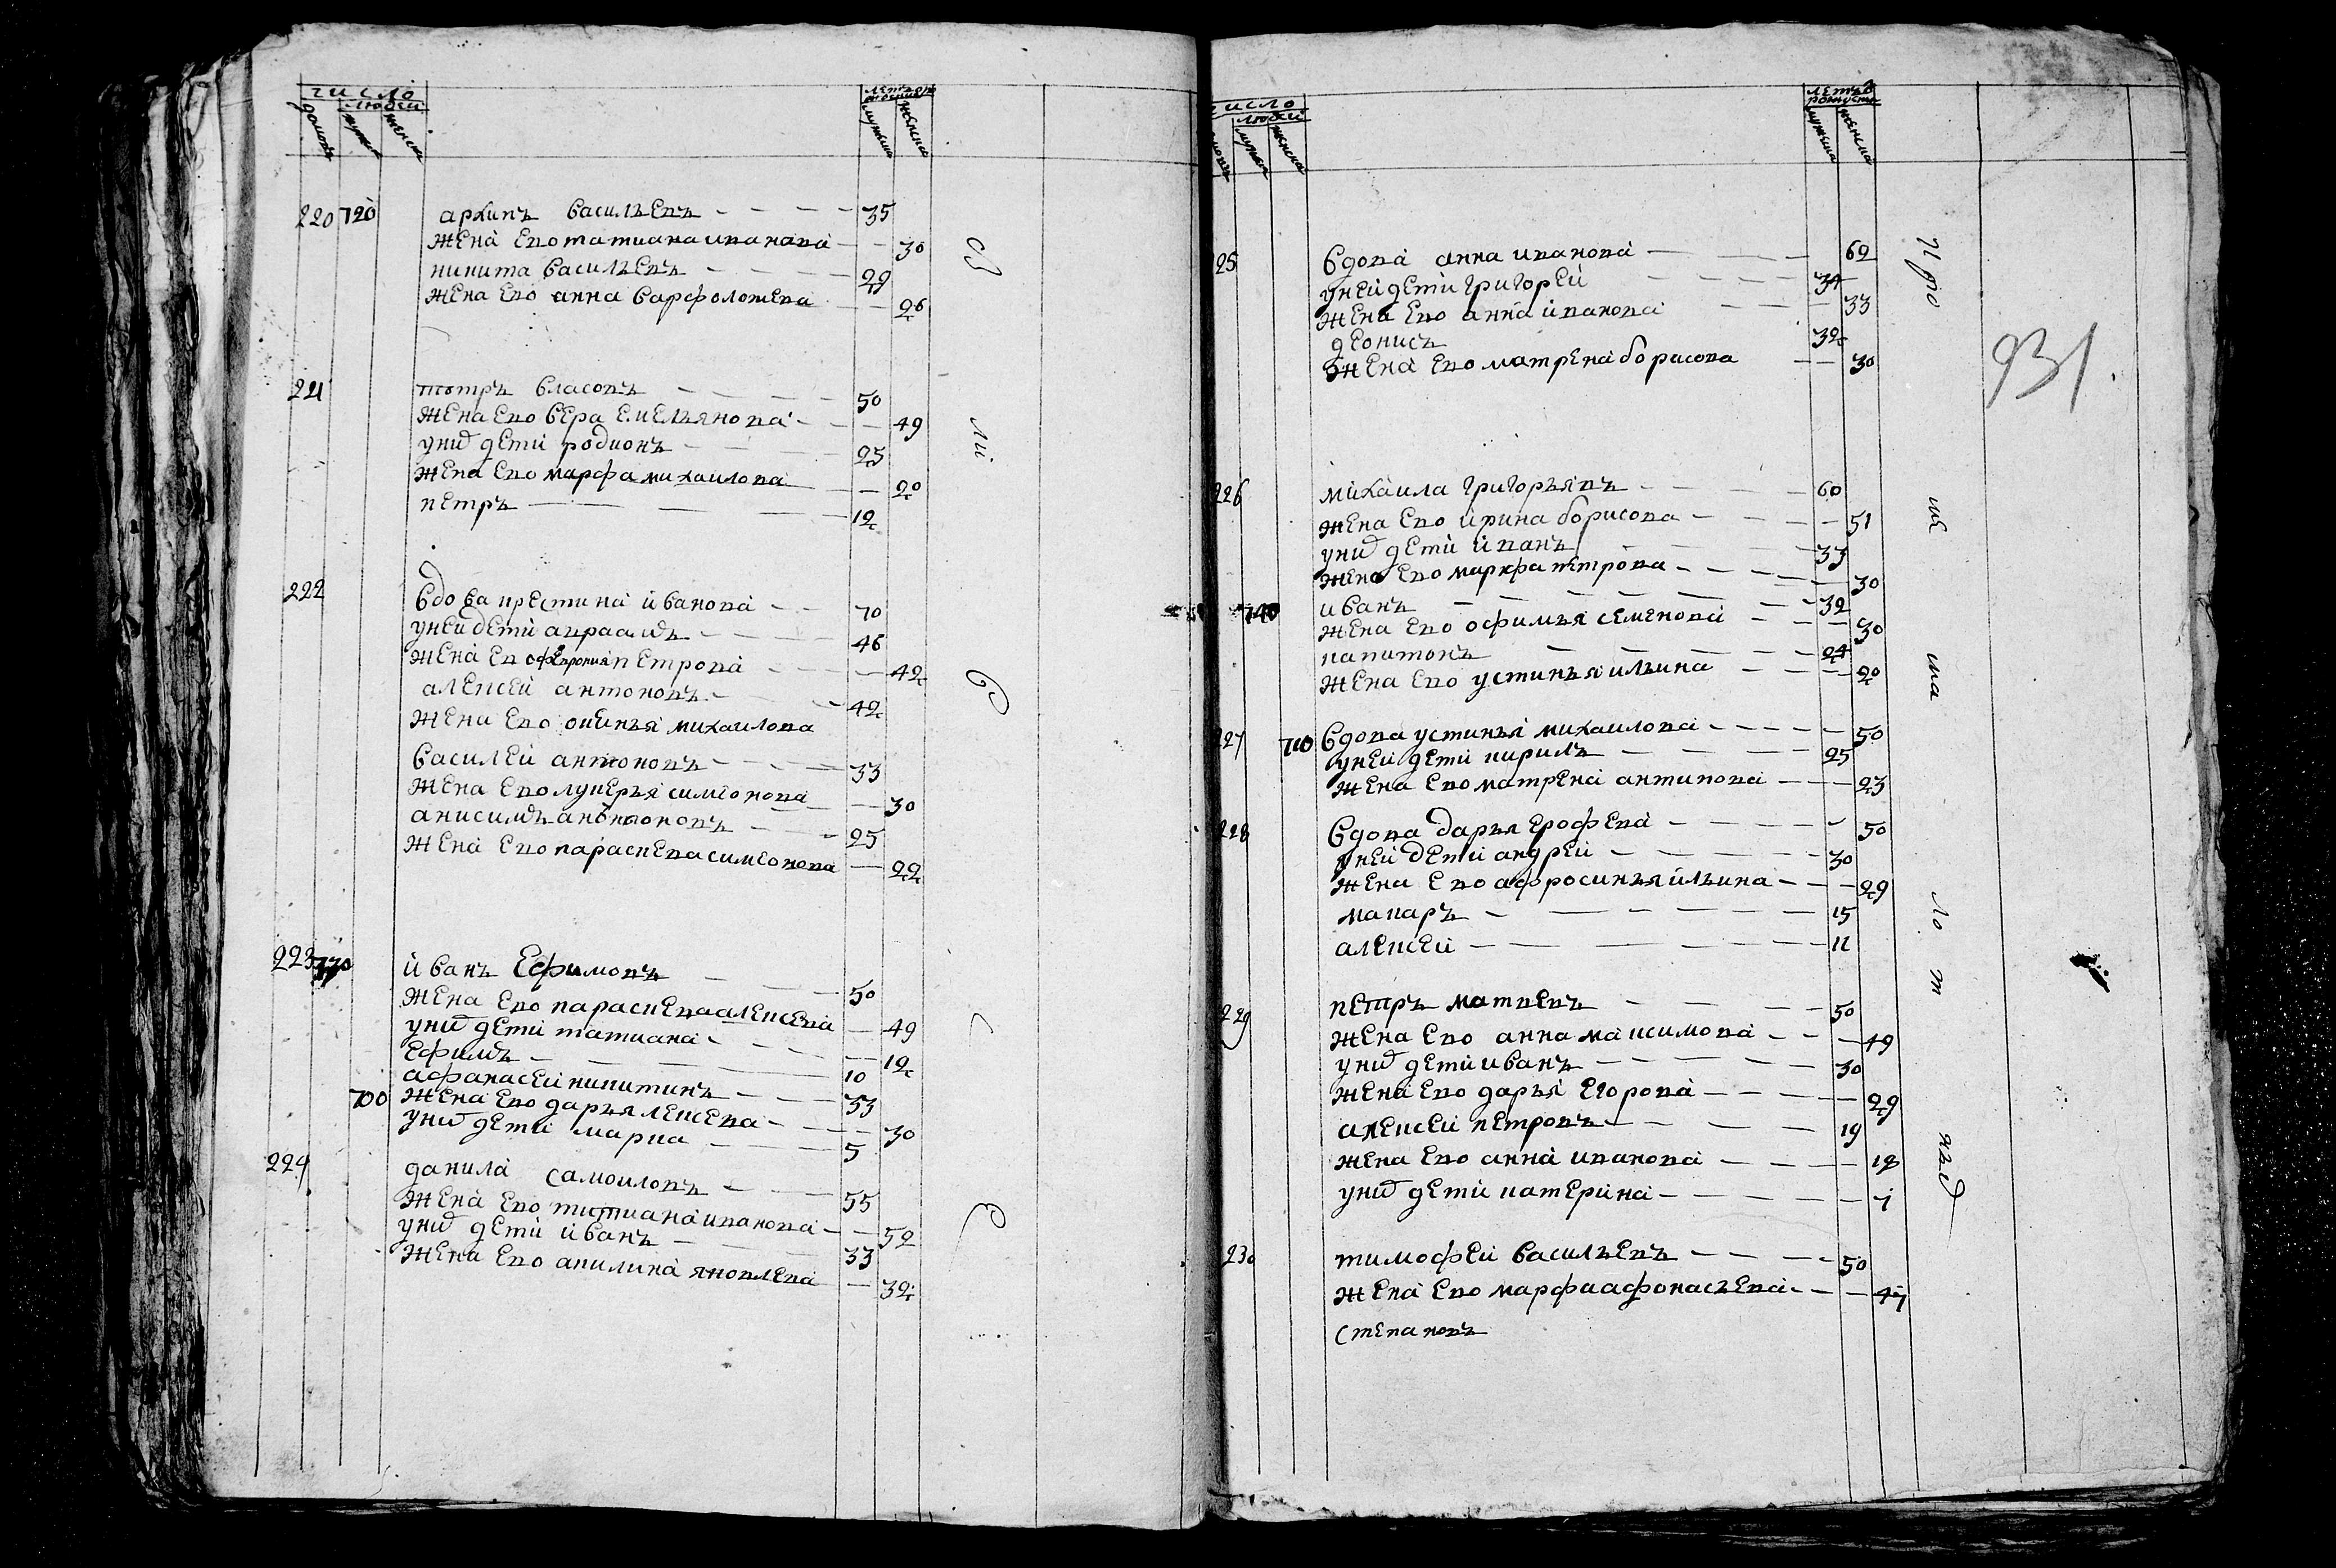 число
людей
домовъ
мужеска
женска
летъ от рождения
мужеска
женска
220 720 архипъ василъевъ 35
жена ево татиана иванова 30
никита василъевъ 29
жена ево анна варфоломева 26
221 петръ власовъ 50
жена ево вера емелъянова 49
униx дети родионъ 25
жена ево марфа михаилова 20
петръ 12
222 вдова крестина иванова 70
уней дети авраамъ 46
жена ево феврониа петрова 42
алексей антоновъ 42
жена ево михаилова
василей антоновъ 33
жена ево лукеръя симеонова 30
анисимъ антоновъ 25
жена ево параскева симеонова 22
223 730 иванъ ефимовъ 50
жена ево параскева алексева 49
униx дети татиана 12
ефимъ 10
афанасей никитинъ 33
700 жена ево даръя лексева 30
униx дети мариа 5
224 данила самоиловъ 55
жена ево титиана иванова 52
униx дети иванъ 33
жена ево акилина яковлева 32
сз
ли
в
с
е
число
людей
мужеска
женска
летъ от рождения
мужеска
женска
931.
25 вдова анна иванова 62
уней дети григорей 34
жена ево анна иванова 33
деонисъ 32
жена ево матрена борисова 30
226 михаила григоръявъ 60
жена ево ирина борисова 51
униx дети иванъ 33
жена ево марфа петрова 30
740 иванъ 32
жена ево офимъя семенова 30
капитонъ 24
жена ево устинъя илъина 20
227 710 вдова устинъя михаилова 50
уней дети кирилъ 25
жена ево матрена антипова 23
228 вдова даръя ерофева 50
уней дети андрей 30
жена ево афросинъя илъина 29
макаръ 15
алексей 11
229 петръ матвевъ 50
жена ево анна максимова 49
униx дети иванъ 30
жена ево даръя егорова 29
алексей петровъ 19
жена ево анна иванова 18
униx дети катерина 1
230 тимофей василъевъ 50
жена ево марфа афонасъева 47
степановъ
про
ше
ма
ло
т